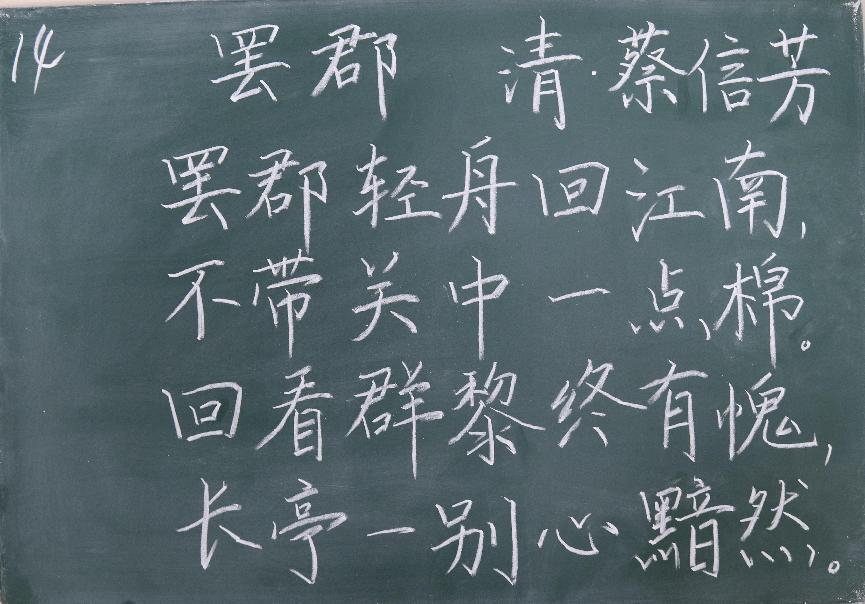 14 罢郡 清·蔡信芳
罢郡轻舟回江南,
不带关中一点棉。
回看群黎终有愧,
长亭一别心黯然。